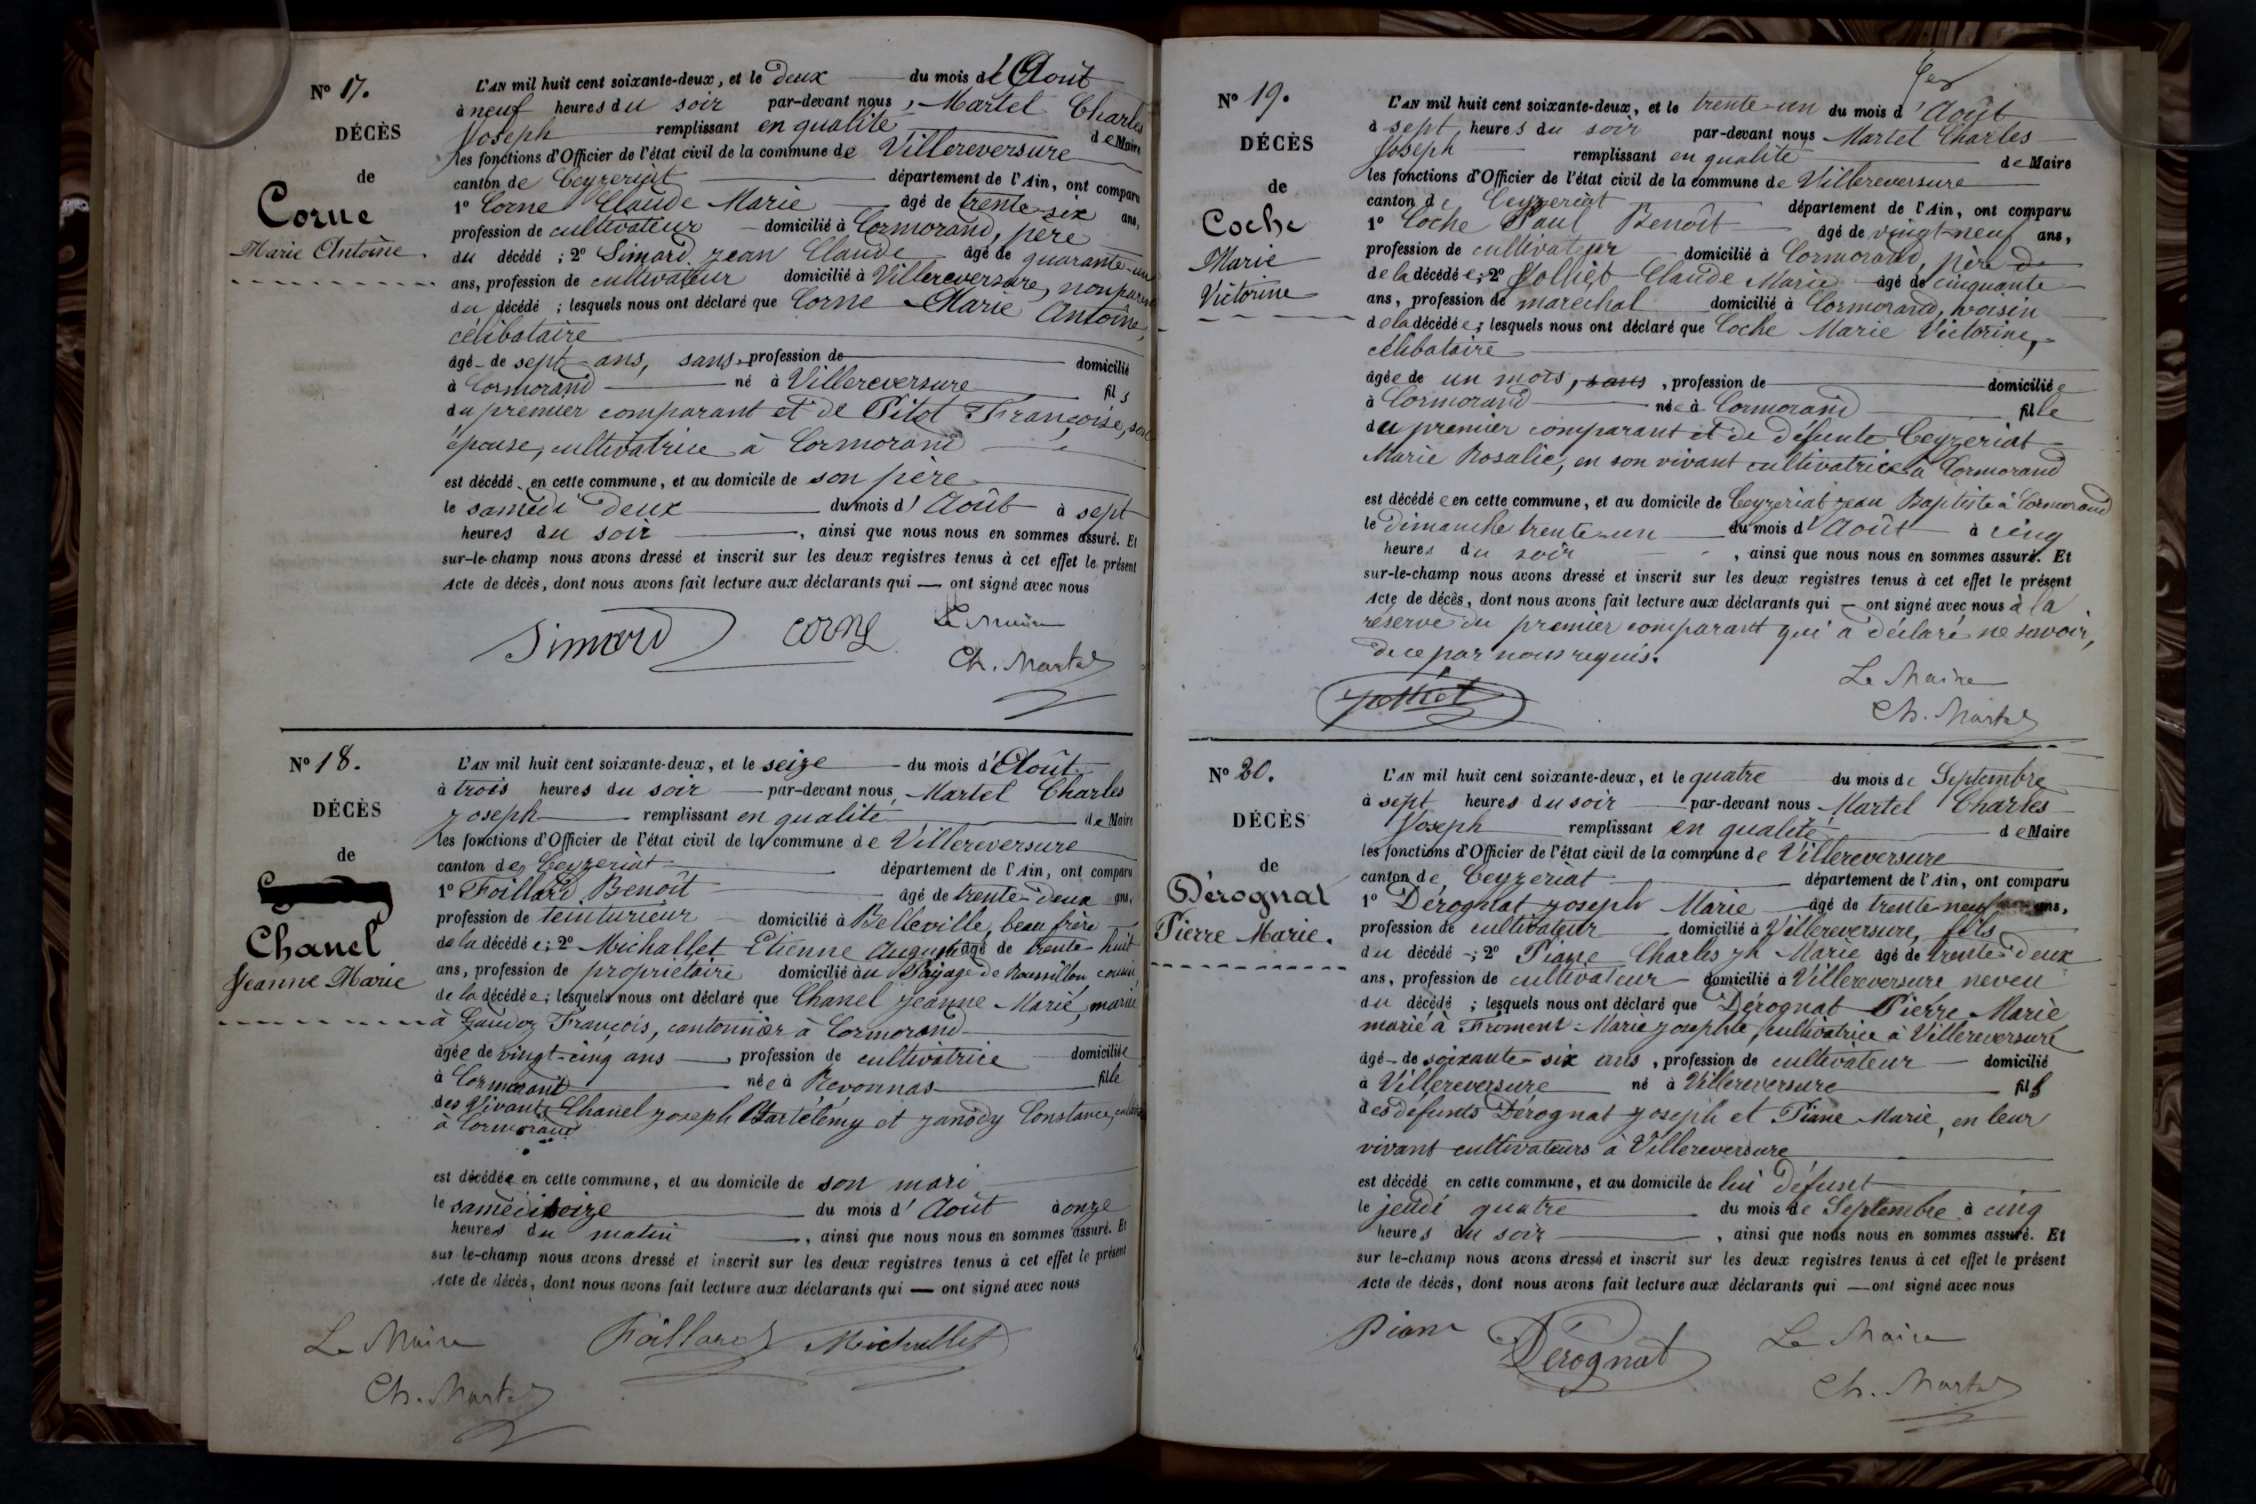 Nº 17.
DÉCÈS
de
Corne
Marie Antoine.
L'AN mil huit cent soixante-deux, et le deux du mois d'Août
à neuf heures du soir par-devant nous, Martel Charles
Joseph remplissant en qualité de Maire
les fonctions d'Officier de l'état civil de la commune de Villereversure
canton de Ceyzeriat département de l'Ain, ont comparu
1º Corne Claude Marie âgé de trente-six ans,
profession de cultivateur domicilié à Cormorand, père
du décédé ; 2º Simard Jean Claude âgé de quarante-un
ans, profession de cultivateur domicilié à Villereversure, non parent
du décédé ; lesquels nous ont déclaré que Corne Marie Antoine,
célibataire
âgé de sept ans, sans profession de domicilié
à Cormorand né à Villereversure fils
du premier comparant et de Pitot Françoise, son
épouse, cultivatrice à Cormorand
est décédé en cette commune, et au domicile de son père
le samedi deux du mois d'Août à sept
heures du soir, ainsi que nous nous en sommes assuré. Et
sur-le-champ nous avons dressé et inscrit sur les deux registres tenus à cet effet le présent
Acte de décès, dont nous avons fait lecture aux déclarants qui — ont signé avec nous
Simard Corne Le Maire
Ch. Martel
Nº 18.
DÉCÈS
de
Chanel
Jeanne Marie
L'AN mil huit cent soixante-deux, et le seize du mois d'Août
à trois heures du soir par-devant nous, Martel Charles
Joseph remplissant en qualité de Maire
les fonctions d'Officier de l'état civil de la commune de Villereversure
canton de Ceyzeriat département de l'Ain, ont comparu
1º Foillard Benoît âgé de trente-deux ans,
profession de teinturieur domicilié à Belleville, beau frère
de la décédée ; 2º Michallet Etienne Auguste âgé de trente-huit
ans, profession de proprietaire domicilié au Péage de Roussillon cousin
de la décédée ; lesquels nous ont déclaré que Chanel Jeanne Marie, mariée
à Gaudoz François, cantonnier à Cormorand
âgée de vingt-cinq ans, profession de cultivatrice domiciliée
à Cormorand née à Revonnas fille
des vivants Chanel Joseph Bartélémy et Janody Constance,
à Cormorand
est décédée en cette commune, et au domicile de son mari
le samedi seize du mois d'Août à onze
heures du matin, ainsi que nous nous en sommes assuré. Et
sur-le-champ nous avons dressé et inscrit sur les deux registres tenus à cet effet le présent
Acte de décès, dont nous avons fait lecture aux déclarants qui — ont signé avec nous
Le Maire Foillard Michallet
Ch. Martel
Nº 19.
DÉCÈS
de
Coche
Marie
Victorine
L'AN mil huit cent soixante-deux, et le trente-un du mois d'Août
à sept heures du soir par-devant nous Martel Charles
Joseph remplissant en qualité de Maire
les fonctions d'Officier de l'état civil de la commune de Villereversure
canton de Ceyzeriat département de l'Ain, ont comparu
1º Coche Paul Benoît âgé de vingt-neuf ans,
profession de cultivateur domicilié à Cormorand, père de
de la décédée ; 2º Jolliet Claude Marie âgé de cinquante
ans, profession de maréchal domicilié à Cormorand, voisin
de la décédée ; lesquels nous ont déclaré que Coche Marie Victorine,
célibataire
âgée de un mois, sans, profession de domiciliée
à Cormorand née à Cormorand fille
du premier comparant et de défunte Ceyzeriat
Marie Rosalie, en son vivant cultivatrice à Cormorand
est décédée en cette commune, et au domicile de Ceyzeriat Jean Baptiste à Cormorand
le dimanche trente-un du mois d'Août à cinq
heures du soir, ainsi que nous nous en sommes assuré. Et
sur-le-champ nous avons dressé et inscrit sur les deux registres tenus à cet effet le présent
Acte de décès, dont nous avons fait lecture aux déclarants qui — ont signé avec nous à la
réserve du premier comparant qui a déclaré ne savoir,
de ce par nous requis.
Jolliet Le Maire
Ch. Martel
Nº 20.
DÉCÈS
de
Dérognat
Pierre Marie.
L'AN mil huit cent soixante-deux, et le quatre du mois de Septembre
à sept heures du soir par-devant nous Martel Charles
Joseph remplissant en qualité de Maire
les fonctions d'Officier de l'état civil de la commune de Villereversure
canton de Ceyzeriat département de l'Ain, ont comparu
1º Dérognat Joseph Marie âgé de trente-neuf ans,
profession de cultivateur domicilié à Villereversure, fils
du décédé ; 2º Piane Charles Jh Marie âgé de trente-deux
ans, profession de cultivateur domicilié à Villereversure neveu
du décédé ; lesquels nous ont déclaré que Dérognat Pierre Marie
marié à Froment Marie Josephte, cultivatrice à Villereversure
âgé de soixante-six ans, profession de cultivateur domicilié
à Villereversure né à Villereversure fils
des defunts Dérognat Joseph et Piane Marie, en leur
vivant cultivateurs à Villereversure
est décédé en cette commune, et au domicile de lui défunt
le jeudi quatre du mois de Septembre à cinq
heures du soir, ainsi que nous nous en sommes assuré. Et
sur le-champ nous avons dressé et inscrit sur les deux registres tenus à cet effet le présent
Acte de décès, dont nous avons fait lecture aux déclarants qui — ont signé avec nous
Piane Dérognat Le Maire
Ch. Martel